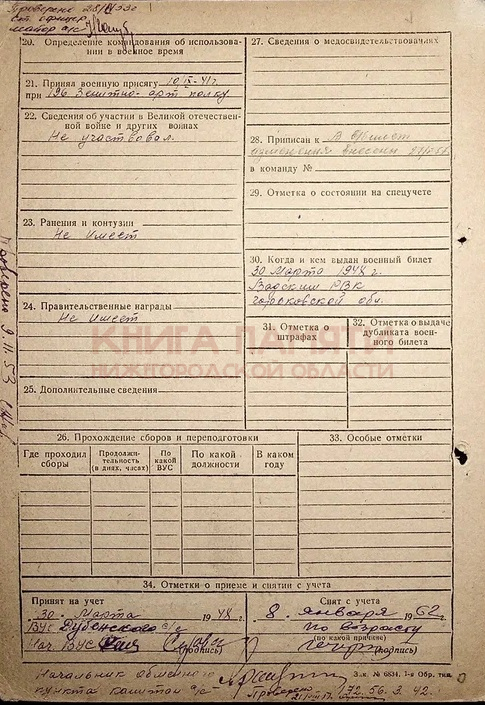 Проверено 28/IV 53г
ст. офицер
майор а/с
20. Определение командования об использова-
нии в военное время
21. Принял военную присягу 10/IX-41г
при 196 Зенитно-арт полку
22. Сведения об участии в Великой отечествен-
ной войне и других войнах
Не участвовал.
23. Ранения и контузии
Не имеет
24. Правительственные награды
Не имеет
25. Дополнительные сведения
27. Сведения о медосвидетельствованиях
28. Приписан к
изменения внесены
в команду №
29. Отметка о состоянии на спецучете
30. Когда и кем выдан военный билет
30 Марта 1948 г.
Вадским РВК
Горьковской обл.
31. Отметка о штрафах
32. Отметка о выдаче дубликата воен-
ного билета
КНИГА ПАМЯТИ
НИЖЕГОРОДСКОЙ ОБЛАСТИ
26. Прохождение сборов и переподготовки
Где проходил сборы
Продолжи-
тельность
(в днях, часах)
По какой ВУС
По какой должности
В каком году
33. Особые отметки
34. Отметки о приеме и снятии с учета
Принят на учет
30 Марта 1948 г.
ВУС Дубенского с/с
Нач ВУС
(подпись)
Снят с учета
8 января 1962 г.
по возрасту
(по какой причине)
(подпись)
Начальник обменного
пункта капитан а/с
Зак. № 6834. 1-я Обр. тип.
Проверено
172. 56. 3. 42.
Проверено 9.11.53